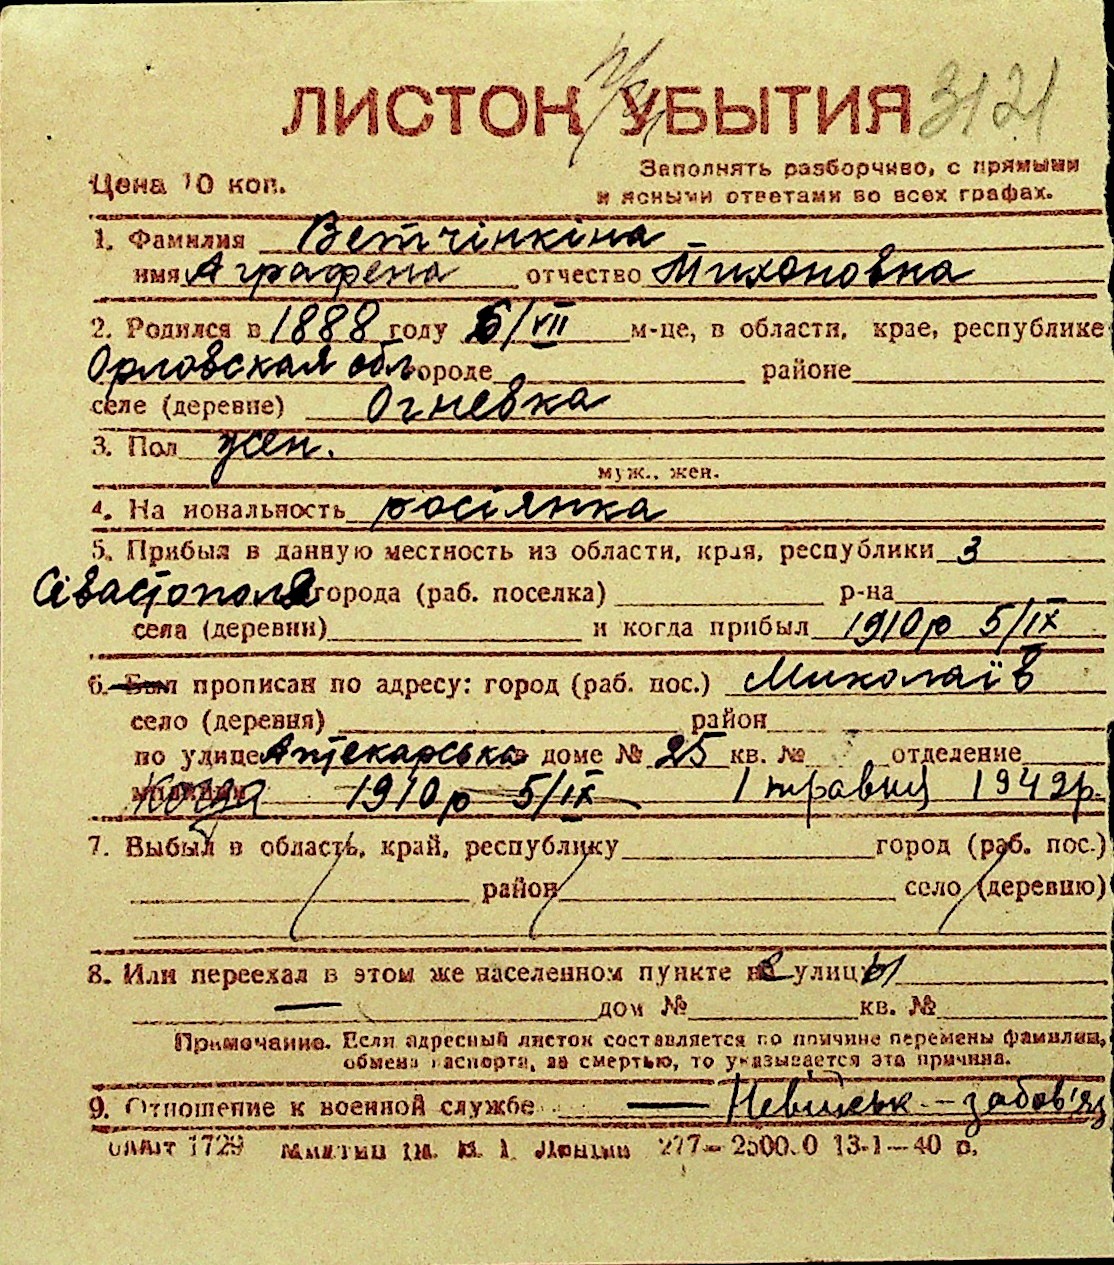 ЛИСТОК УБЫТИЯ 3121
Цена 10 коп.
Заполнять разборчиво, с прямыми
и ясными ответами во всех графах.
1. Фамилия Ветчінкіна
имя Аграфена отчество Тихоновна
2. Родился в 1888 году 6/VII м-це, в области, крае, республике
Орловская обл городе районе
селе (деревне) Огневка
3. Пол жен.
муж., жен.
4. На иональность росіянка
5. Прибыл в данную местность из области, края, республики З
Сівастополя города (раб. поселка) р-на
села (деревни) и когда прибыл 1910р 5/IX
6. Был прописан по адресу: город (раб. пос.) Миколаїв
село (деревня) район
по улице Аптекарська в доме № 25 кв. № отделение
милиции Когда 1910р 5/IX 1 травня 1942р.
7. Выбыл в область, край, республику город (раб. пос.)
район село (деревню)
8. Или переехал в этом же населенном пункте на улицы
— дом № кв. №
Примечание. Если адресный листок составляется по причине перемены фамилии,
обмена паспорта, за смертью, то указывается эта причина.
9. Отношение к военной службе — Невійськ-забов'яз
1729 им. В. І. Леніна 277— 13-1—40 р.